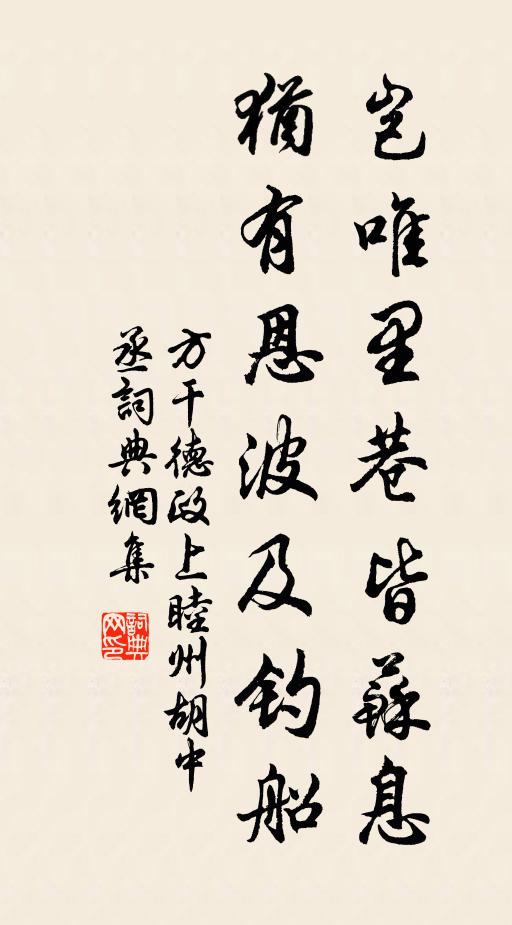 豈唯里巷皆蘇息
猶有恩波及釣船
方干德政上睦州胡中
丞詞典網集
詞典
网印